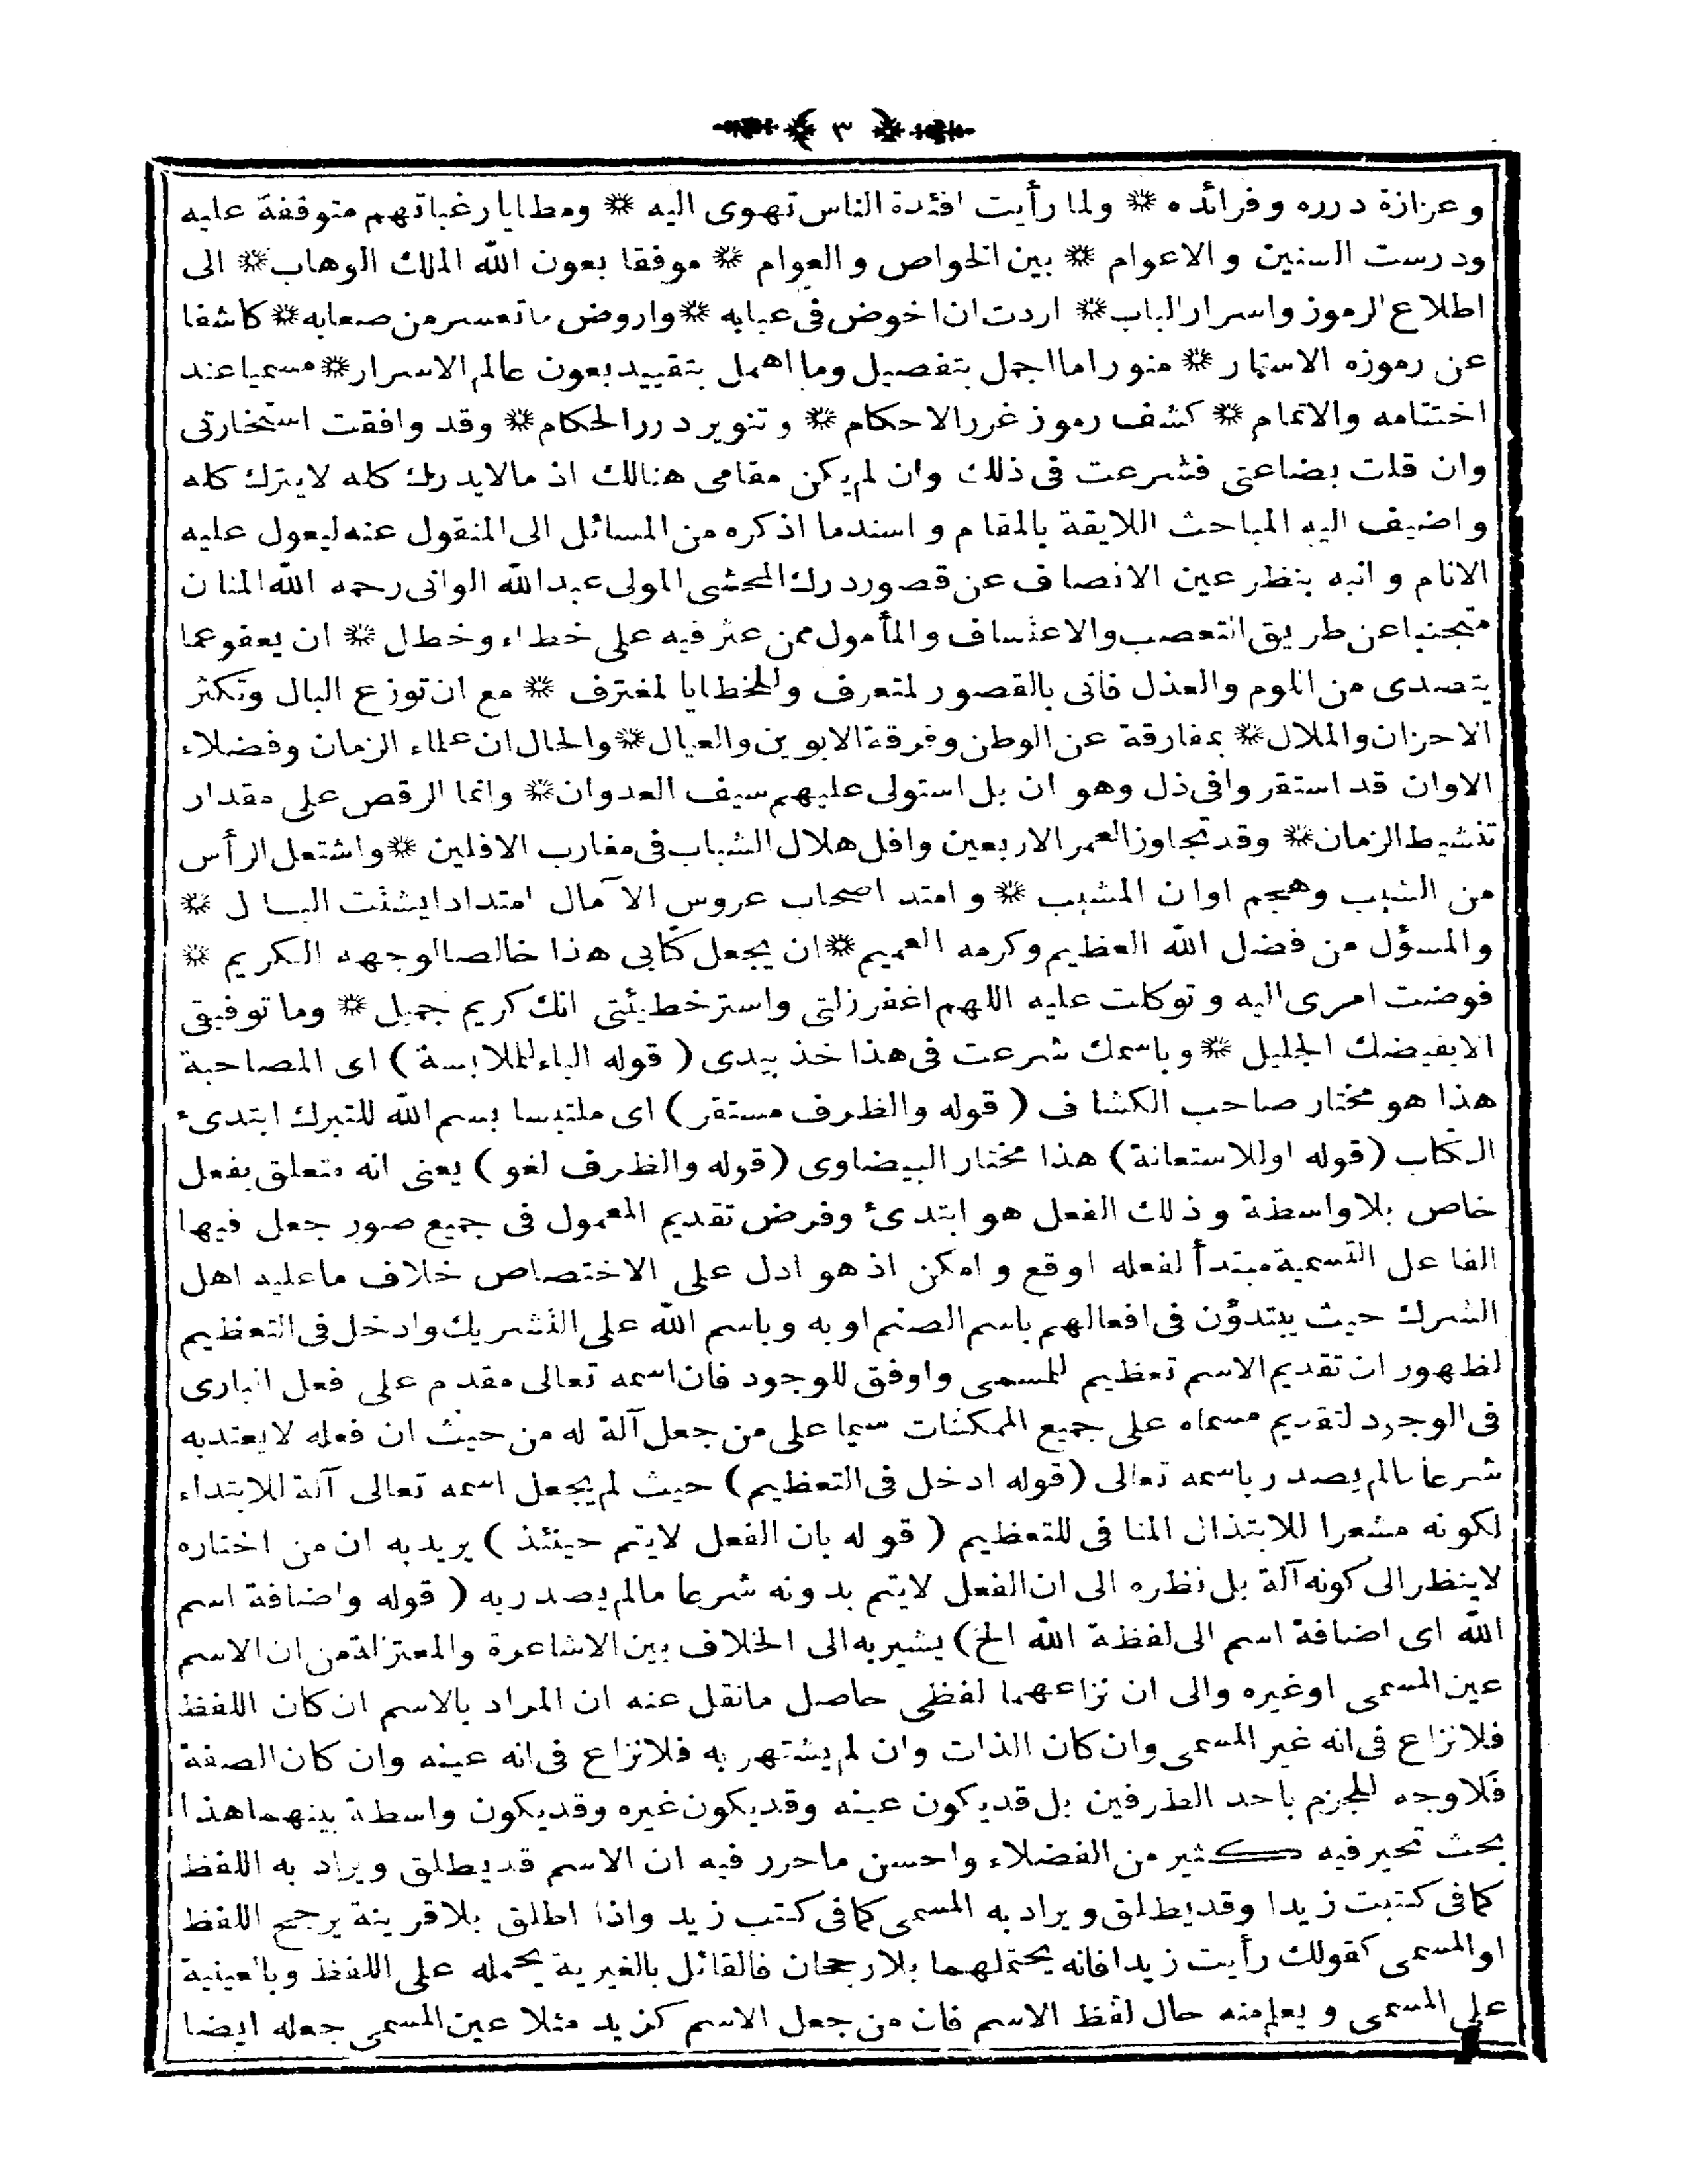 ﴿ ٣ ﴾
وعزازة درره وفرائده * ولما رأيت افئدة الناس تهوى اليه * ومطايا رغباتهم متوقفة عليه
ودرست السنين والاعوام * بين الخواص والعوام * موفقا بعون الله الملك الوهاب * الى
اطلاع الرموز واسرار الباب * اردت ان اخوض فى عبابه * واروض ما تعسر من صعابه * كاشفا
عن رموزه الاستار * منورا ما اجمل بتفصيل وما اهمل بتقييد بعون عالم الاسرار * مسميا عند
اختتامه والاتمام * كشف رموز غرر الاحكام * وتنوير درر الحكام * وقد وافقت استخارتى
وان قلت بضاعتى فشرعت فى ذلك وان لم يكن مقامى هنالك اذ مالا يدرك كله لا يترك كله
واضيف اليه المباحث اللايقة بالمقام واسند ما اذكره من المسائل الى المنقول عنه ليعول عليه
الانام وانبه بنظر عين الانصاف عن قصور درك المحشى المولى عبد الله الوانى رحمه الله المنان
متجنبا عن طريق التعصب والاعتساف والمأمول ممن عثر فيه على خطاء وخطل * ان يعفو عما
يتصدى من اللوم والعذل فانى بالقصور لمتعرف وللخطايا لمغترف * مع ان توزع البال وتكثر
الاحزان والملال * بمفارقة عن الوطن وفرقة الابوين والعيال * والحال ان علماء الزمان وفضلاء
الاوان قد استقروا فى ذل وهوان بل استولى عليهم سيف العدوان * وانما الرقص على مقدار
تنشيط الزمان * وقد تجاوز العمر الاربعين وافل هلال الشباب فى مغارب الافلين * واشتعل الرأس
من الشيب وهجم اوان المشيب * وامتد اصحاب عروس الآمال امتدادا يشتت البال *
والمسؤل من فضل الله العظيم وكرمه العميم * ان يجعل كتابى هذا خالصا لوجهه الكريم *
فوضت امرى اليه وتوكلت عليه اللهم اغفر زلتى واستر خطيئتى انك كريم جميل * وما توفيقى
الا بفيضك الجليل * وباسمك شرعت فى هذا خذ بيدى ( قوله الباء للملابسة ) اى المصاحبة
هذا هو مختار صاحب الكشاف ( قوله والظرف مستقر ) اى ملتبسا بسم الله للتبرك ابتدىء
الكتاب ( قوله او للاستعانة ) هذا مختار البيضاوى ( قوله والظرف لغو ) يعنى انه متعلق بفعل
خاص بلا واسطة وذلك الفعل هو ابتدئ وفرض تقديم المعمول فى جميع صور جعل فيها
الفاعل التسمية مبتدأ لفعله اوقع وامكن اذ هو ادل على الاختصاص خلاف ما عليه اهل
الشرك حيث يبتدؤن فى افعالهم باسم الصنم او به وباسم الله على التشريك وادخل فى التعظيم
لظهور ان تقديم الاسم تعظيم للمسمى واوفق للوجود فان اسمه تعالى مقدم على فعل البارى
فى الوجود لتقديم مسماه على جميع الممكنات سيما على من جعل آلة له من حيث ان فعله لا يعتد به
شرعا مالم يصدر باسمه تعالى ( قوله ادخل فى التعظيم ) حيث لم يجعل اسمه تعالى آلة للابتداء
لكونه مشعرا للابتذال المنافى للتعظيم ( قوله بان الفعل لايتم حينئذ ) يريد به ان من اختاره
لا ينظر الى كونه آلة بل نظره الى ان الفعل لايتم بدونه شرعا مالم يصدر به ( قوله واضافة اسم
الله اى اضافة اسم الى لفظة الله الخ ) يشير به الى الخلاف بين الاشاعرة والمعتزلة من ان الاسم
عين المسمى او غيره والى ان نزاعهما لفظى حاصل مانقل عنه ان المراد بالاسم ان كان اللفظ
فلا نزاع فى انه غير المسمى وان كان الذات وان لم يشتهر به فلا نزاع فى انه عينه وان كان الصفة
فلا وجه للجزم باحد الطرفين بل قد يكون عينه وقد يكون غيره وقد يكون واسطة بينهما هذا
بحث تحير فيه كثير من الفضلاء واحسن ما حرر فيه ان الاسم قد يطلق ويراد به اللفظ
كما فى كتبت زيدا وقد يطلق ويراد به المسمى كما فى كتب زيد واذا اطلق بلا قرينة يرجح اللفظ
او المسمى كقولك رأيت زيدا فانه يحتملهما بلا رجحان فالقائل بالغيرية يحمله على اللفظ وبالعينية
على المسمى ويعلم منه حال لفظ الاسم فان من جعل الاسم كزيد مثلا عين المسمى جعله ايضا